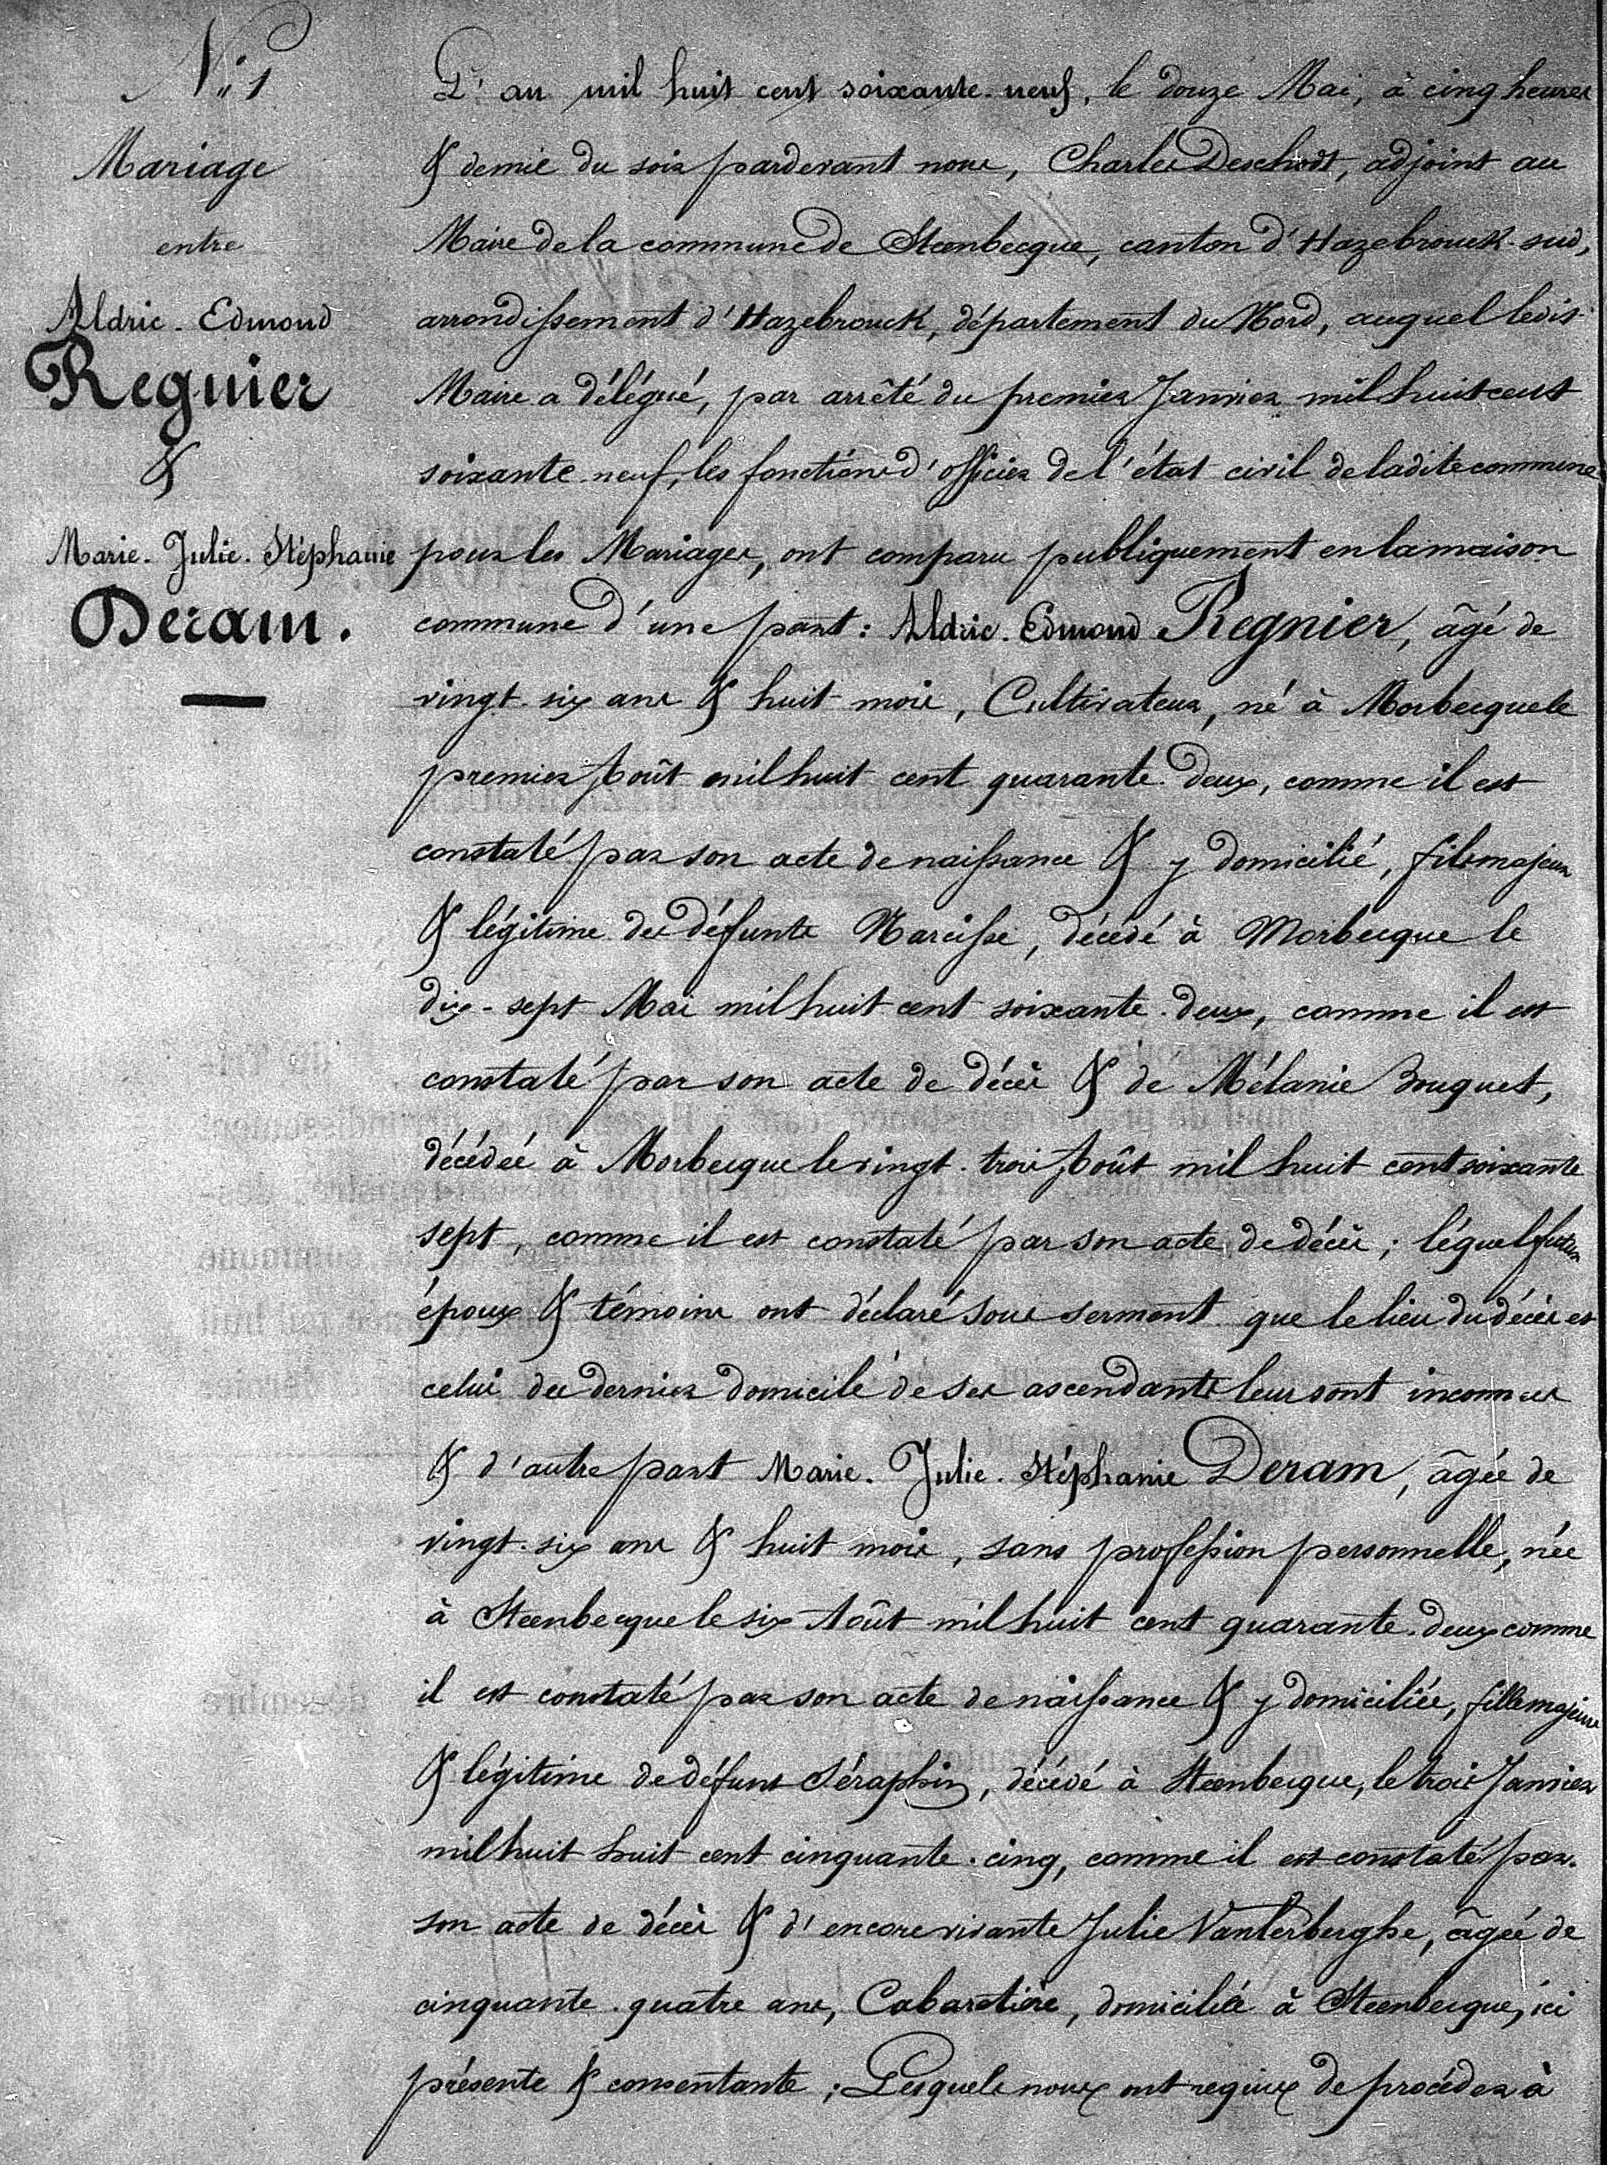 N° 1
Mariage
entre
Aldric. Edmond
Regnier
&
Marie. Julie. Stéphanie
Deram.
L'an mil huit cent soixante-neuf, le douze Mai, à cinq heures
& demie du soir pardevant nous, Charles Deschodt, adjoint au
Maire de la commune de Steenbecque, canton d'Hazebrouck-sud,
arrondissement d'Hazebrouck, département du Nord, auquel ledit
Maire a délégué, par arrêté du premier Janvier mil huit cent
soixante-neuf, les fonctions d'officier de l'état civil de ladite commune
pour les Mariages, ont comparu publiquement en la maison
commune d'une part: Aldric. Edmond Regnier, âgé de
vingt-six ans & huit mois, Cultivateur, né à Morbecque le
premier Août mil huit cent quarante-deux, comme il est
constaté par son acte de naissance & y domicilié, fils majeur
& légitime des défunts Narcisse, décédé à Morbecque le
dix-sept Mai mil huit cent soixante-deux, comme il est
constaté par son acte de décès & de Mélanie Bouquet,
décédée à Morbecque le vingt-trois Août mil huit cent soixante
sept, comme il est constaté par son acte de décès; léquel futur
époux & témoins ont déclaré sous serment que le lieu du décès et
celui des derniers domicile de ses ascendants leur sont inconnus
& d'autre part Marie. Julie. Stéphanie Deram, âgée de
vingt-six ans & huit mois, sans profession personnelle, née
à Steenbecque le six Août mil huit cent quarante-deux comme
il est constaté par son acte de naissance & y domiciliée, fille majeure
& légitime de défunt Séraphin, décédé à Steenbecque, le trois Janvier
mil huit huit cent cinquante-cinq, comme il est constaté par
son acte de décès & d'encore vivante Julie Vanterberghe, âgée de
cinquante-quatre ans, Cabaretière, domiciliée à Steenbecque, ici
présente & consentante; Lesquels nous ont requis de procéder à